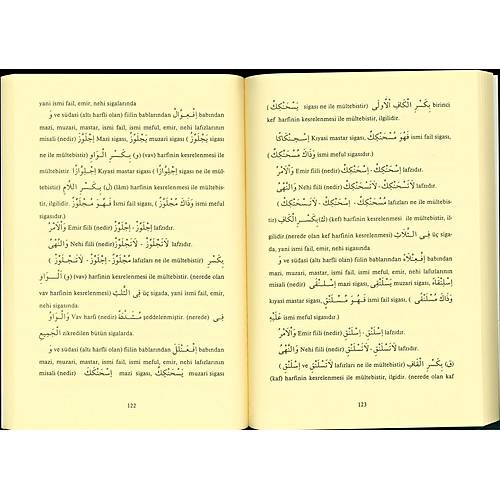 yani ismi fail, emir, nehi sigalarında
و ve südasi (altı harfli olan) fiilin bablarından اِفْعِوَّالٌ babından
mazi, muzari, mastar, ismi fail, ismi meful, emir, nehi lafızlarının
misali (nedir) اِجْلَوَّزَ Mazi sigası, يَجْلَوِّزُ muzari sigası (يَجْلَوِّزُ sigası
ne ile mültebistir) بِكَسْرِ الْوَاوِ (و) (vav) harfinin kesrelenmesi ile
mültebistir اِجْلِوَّازًا Kıyasi mastar sigası (اِجْلِوَّازًا sigası ne ile mül-
tebistir) بِكَسْرِ اللَّامِ (ل) (lâm) harfinin kesrelenmesi ile mültebis-
tir, ilgilidir. فَهُوَ مُجْلَوِّزٌ ismi fail sigası, (وَذَاكَ مُجْلَوَّزٌ ismi meful
sigasıdır.)
وَالْاَمْرُ Emir fiili (nedir) اِجْلَوِّزْ - اِجْلَوِّزْ lafzıdır.
وَالنَّهْىُ Nehi fiili (nedir) لَاتَجْلَوِّزْ - لَاتَجْلَوِّزْ lafzıdır.
( لَاتَجْلَوِّزْ - اِجْلَوِّزْ - مُجْلَوِّزٌ lafızları ne ile mültebistir) بِكَسْرِ
الْوَاوِ (و) (vav) harfinin kesrelenmesi ile mültebistir. (nerede olan
vav harfinin kesrelenmesi) فِى الثَّلٰثِ üç sigada, yani ismi fail, emir,
nehi sigasında.
وَالْوَاوُ Vav harfi (nedir) مُشَدَّدَةٌ şeddelenmiştir. (nerede) فِى
الْجَمِيعِ zikredilen bütün sigalarda.
و ve südasi (altı harfli olan) fiilin bablarından اِفْعَنْلَلَ babından
mazi, muzari, mastar, ismi fail, ismi meful, emir, nehi lafızlarının
misali (nedir) اِسْحَنْكَكَ mazi sigası, يَسْحَنْكِكُ muzari sigası
122
( يَسْحَنْكِكُ sigası ne ile mültebistir) بِكَسْرِ الْكَافِ الْاُولٰى birinci
kef harfinin kesrelenmesi ile mültebistir, ilgilidir.
اِسْحِنْكَاكًا Kıyasi mastar sigası, فَهُوَ مُسْحَنْكِكٌ ismi fail sigası,
( وَذَاكَ مُسْحَنْكَكٌ ismi meful sigasıdır.)
وَالْاَمْرُ Emir fiili (nedir) اِسْحَنْكِكْ - اِسْحَنْكِكْ lafzıdır.
وَالنَّهْىُ Nehi fiili (nedir) لَاتَسْحَنْكِكْ - لَاتَسْحَنْكِكْ lafzıdır.
( لَاتَسْحَنْكِكْ - اِسْحَنْكِكْ - مُسْحَنْكِكٌ lafızları ne ile mültebis-
tir.) بِكَسْرِ الْكَافِ (ك) (kef) harfinin kesrelenmesi ile mültebistir, il-
gilidir.(nerede olan kef harfinin kesrelenmesi) فِى الثَّلَاثِ üç siga-
da, yani ismi fail, emir, nehi sigasında
و ve südasi (altı harfli olan) fiilin bablarından اِفْعِنْلَاءٌ babından
mazi, muzari, mastar, ismi fail, ismi meful, emir, nehi lafızlarının
misali (nedir) اِسْلَنْقٰى mazi sigası, يَسْلَنْقِى muzari sigası, اِسْلِنْقَاءً
kıyasi mastar sigası, فَهُوَ مُسْلَنْقٍ ismi fail sigası, (وَذَاكَ مُسْلَنْقًى
عَلَيْهِ ismi meful sigasıdır.)
وَالْاَمْرُ Emir fiili (nedir) اِسْلَنْقِ - اِسْلَنْقِ lafzıdır.
وَالنَّهْىُ Nehi fiili (nedir) لَاتَسْلَنْقِ - لَاتَسْلَنْقِ lafzıdır.
( اِسْلَنْقِ ve لَاتَسْلَنْقِ lafızları ne ile mültebistir) بِكَسْرِ الْقَافِ (ق)
(kaf) harfinin kesrelenmesi ile mültebistir, ilgidir. (nerede olan kaf
123